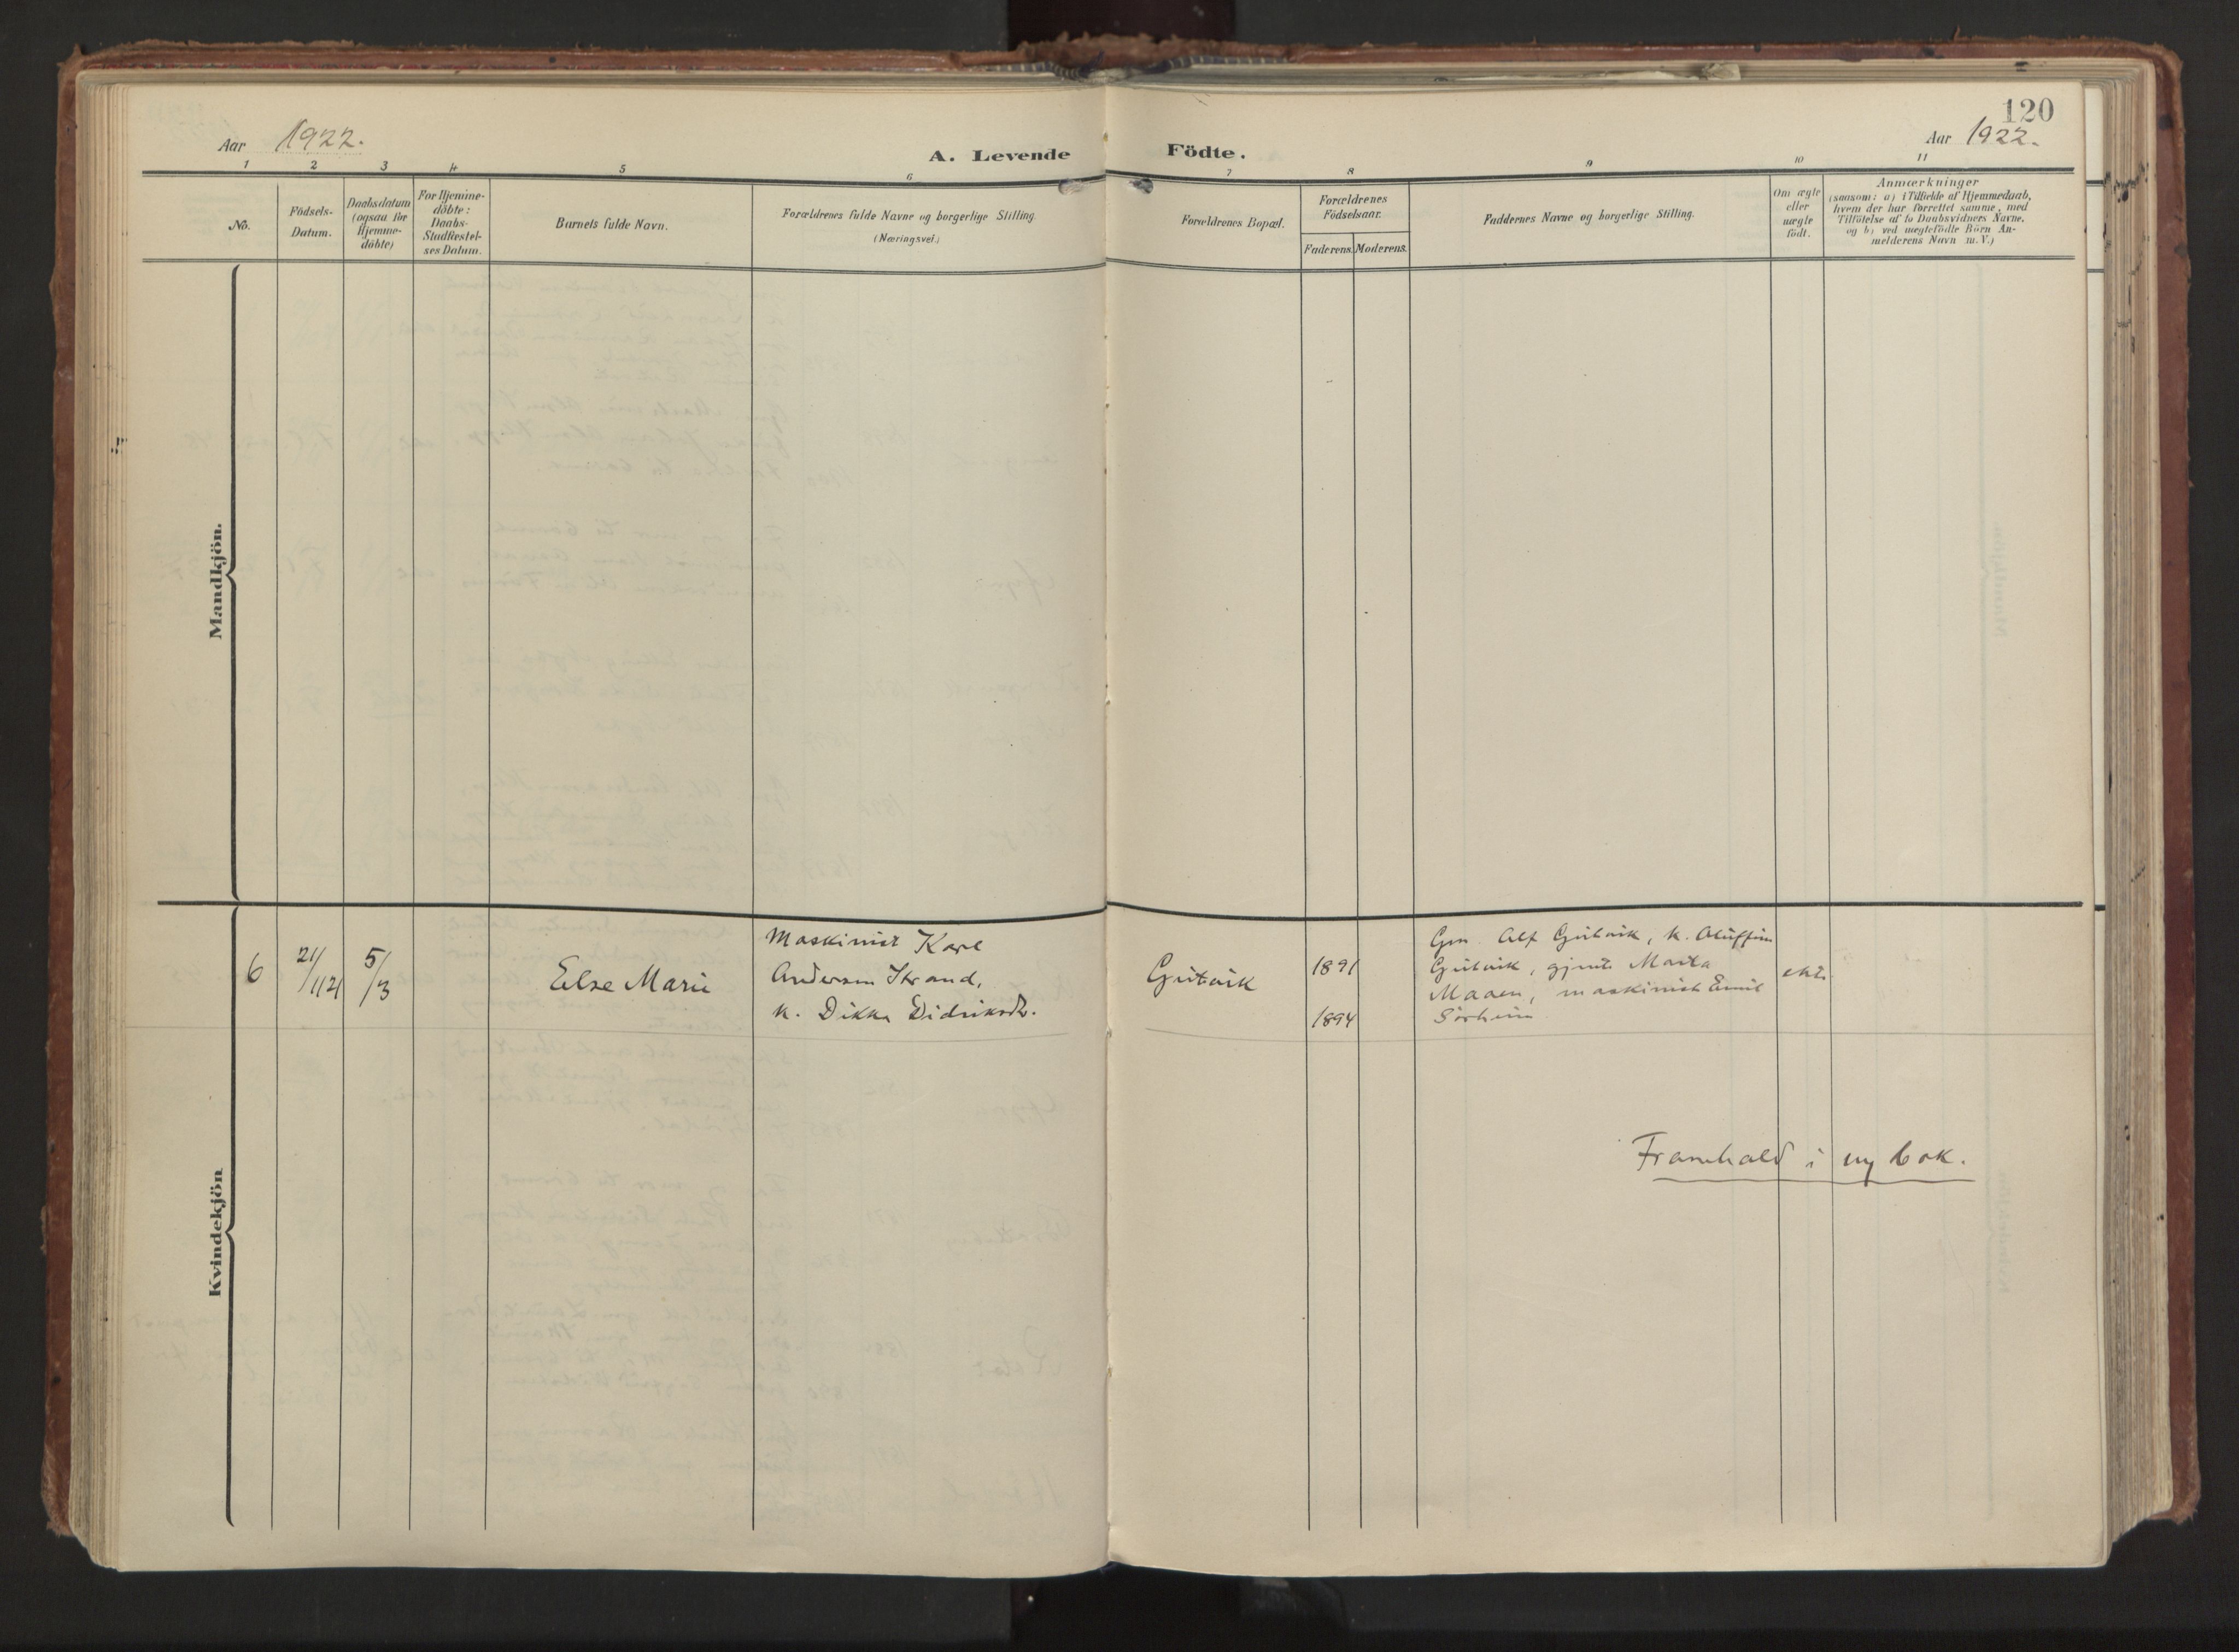 120
Aar 1922.
A. Levende Födte.
Aar 1922.
1 2 3 4 5 6 7 8 9 10 11
No.
Födsels-
Datum.
Daabsdatum
(ogsaa for
Hjemme-
döbte)
For Hjemme-
döbte:
Daabs-
Stadfestel-
ses Datum.
Barnets fulde Navn.
Forældrenes fulde Navne og borgerlige Stilling.
(Næringsvei.)
Forældrenes Bopæl.
Forældrenes
Födselsaar.
Faderens. Moderens.
Faddernes Navne og borgerlige Stilling.
Om ægte
eller
uægte
födt.
Anmærkninger
(saasom: a) i Tilfælde af Hjemmedaab,
hvem der har forrettet samme, med
Tilföielse af to Daabsvidners Navne,
og b) ved uægtefödte Börn An-
melderens Navn m. V.)
Mandkjön.
Kvindekjön.
6
21/1 121
5/3
Else Marie
Maskinist Karl
Anderson Strand,
k. Dikka Didriksdt.
Gutvik
1891
1894
Gm. Alf Gutvik, k. Oluffine
Gutvik, gjente Marta
Maaen, maskinist Emil
Sörheim
ekte
Framhald i ny bok.